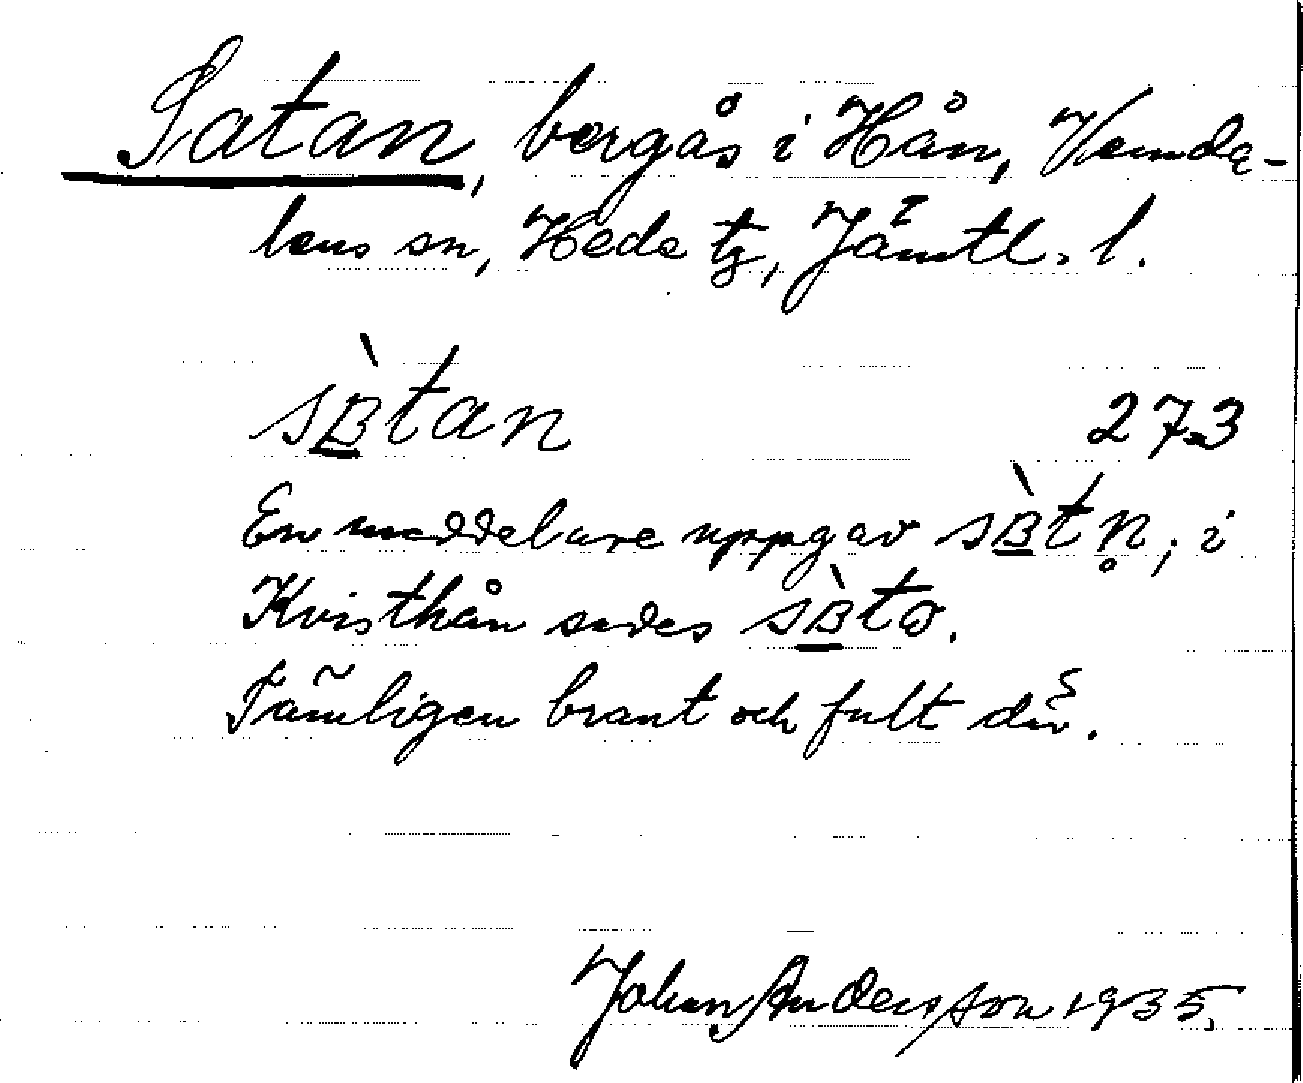 Satan, bergås i Hån, Vemda-
lens sn, Hede tg, Jämtl. l.
sʙ̀tan 273
En meddelare uppgav sʙ̀tn̥; i
Kvisthån sades sʙ̀ta.
Tämligen brant och fult där.
Johan Andersson 1935.